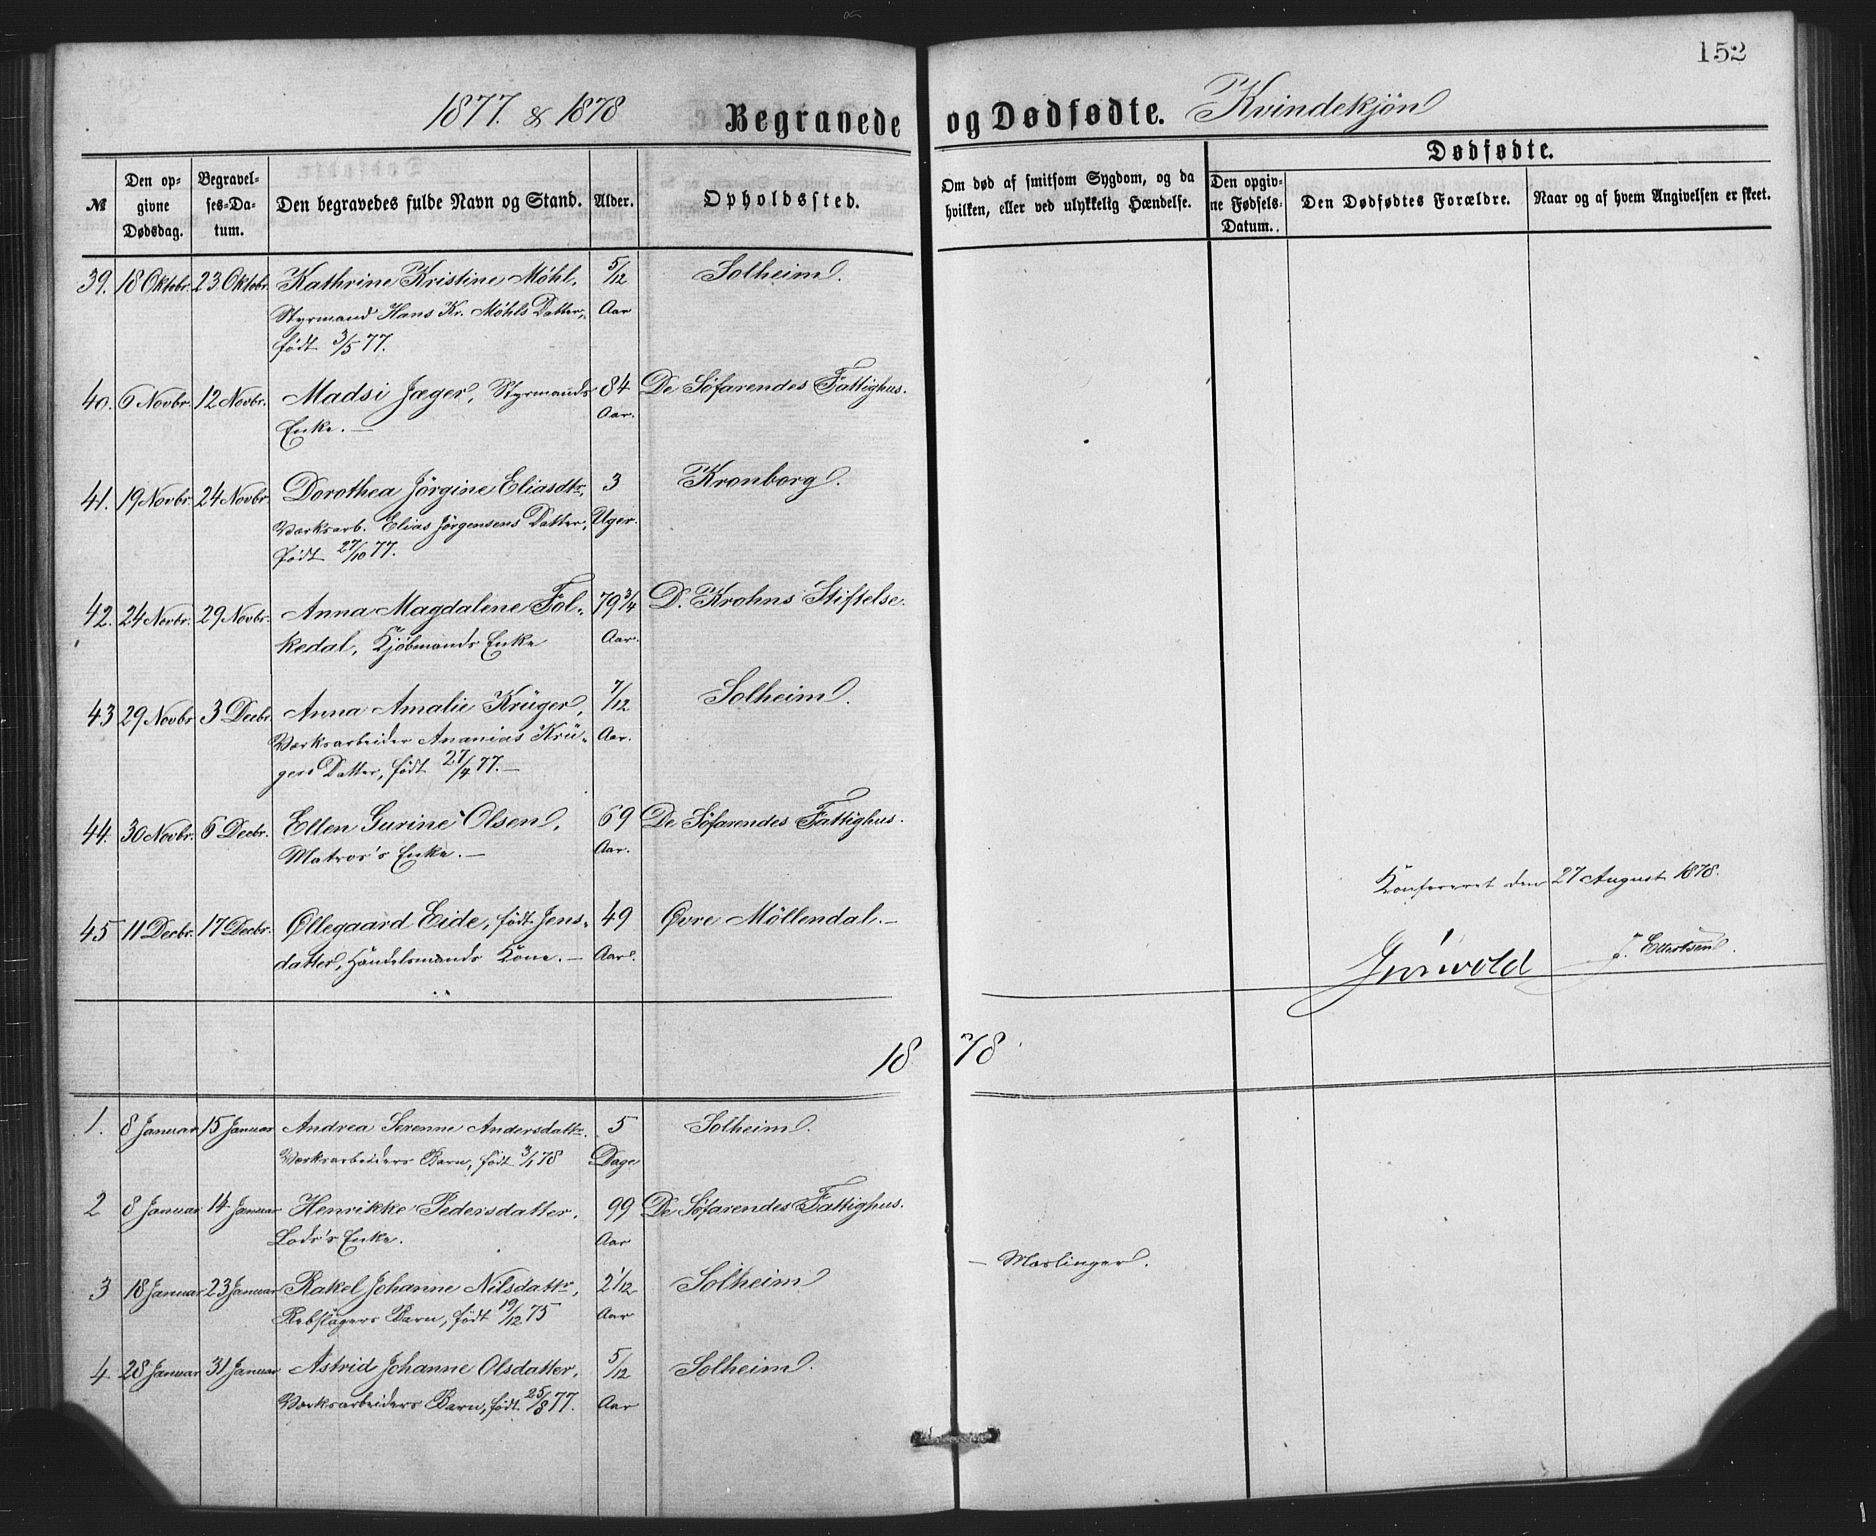 152
1877. & 1878 Begravede og Dødfødte. Kvindekjøn
№
Den opgivne Dødsdag.
Begravelses-Datum.
Den begravedes fulde Navn og Stand.
Alder.
Opholdssted.
Om død af smitsom Sygdom, og da hvilken, eller ved ulykkelig Hændelse.
Dødfødte.
Den opgivne Fødsels-Datum.
Den Dødfødtes Forældre.
Naar og af hvem Angivelsen er skeet.
39. 18 Oktobr. 23 Oktobr. Kathrine Kristine Møhl, 5/12 Solheim.
Styrmand Hans Kr. Møhls Datter, Aar
født 3/5 77.
40. 6 Novbr. 12 Novbr. Madsi Jæger, Styrmands 84 De Söfarendes Fattighus.
Enke. — Aar.
41. 19 Novbr. 24 Novbr. Dorothea Jörgine Eliasdtr, 3 Kronborg.
Værksarb. Elias Jörgensens Datter, Uger.
født 27/10 77.
42. 24 Novbr. 29 Novbr. Anna Magdalene Fol- 79 3/4 D. Krohns Stiftelse.
kedal, Kjöbmands Enke Aar.
43 29 Novbr. 3 Decbr. Anna Amalie Krüger, 7/12 Solheim.
Værksarbeider Ananias Krü- Aar.
gers Datter, født 27/4 77. —
44. 30 Novbr. 6 Decbr. Ellen Gurine Olsen, 69 De Söfarendes Fattighus.
Matros's Enke. — Aar.
45 11 Decbr. 17 Decbr. Øllegaard Eide, født Jens- 49 Øvre Möllendal. —
datter, Handelsmands Kone. — Aar.
Konfereret den 27 August 1878.
Grönvold J. Ellertsen.
1878
1. 8 Januar 15 Januar Andrea Serenne Andersdattr. 5 Solheim.
Værksarbeiders Barn, født 3/1 78 Dage
2 8 Januar 14 Januar Henrikke Pedersdatter, 99 De Söfarendes Fattighus.
Lods's Enke. Aar
3 18 Januar 23 Januar Rakel Johanne Nilsdattr, 2 1/12 Solheim — Mæslinger.
Rebslagers Barn, født 19/12 75 Aar
4 28 Januar 31 Januar Astrid Johanne Olsdatter, 5/12 Solheim.
Værksarbeiders Barn, født 25/8 77. Aar